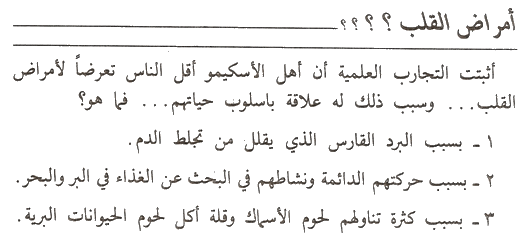 أمراض القلب ؟ ؟ ؟؟
أثبتت التجارب العلمية أن أهل الأسكيمو أقل الناس تعرضاً لأمراض
القلب... وسبب ذلك له علاقة باسلوب حياتهم... فما هو؟
١ ـ بسبب البرد القارس الذي يقلل من تجلط الدم.
٢ ـ بسبب حركتهم الدائمة ونشاطهم في البحث عن الغذاء في البر والبحر.
٣ ـ بسبب كثرة تناولهم لحوم الأسماك وقلة أكل لحوم الحيوانات البرية.